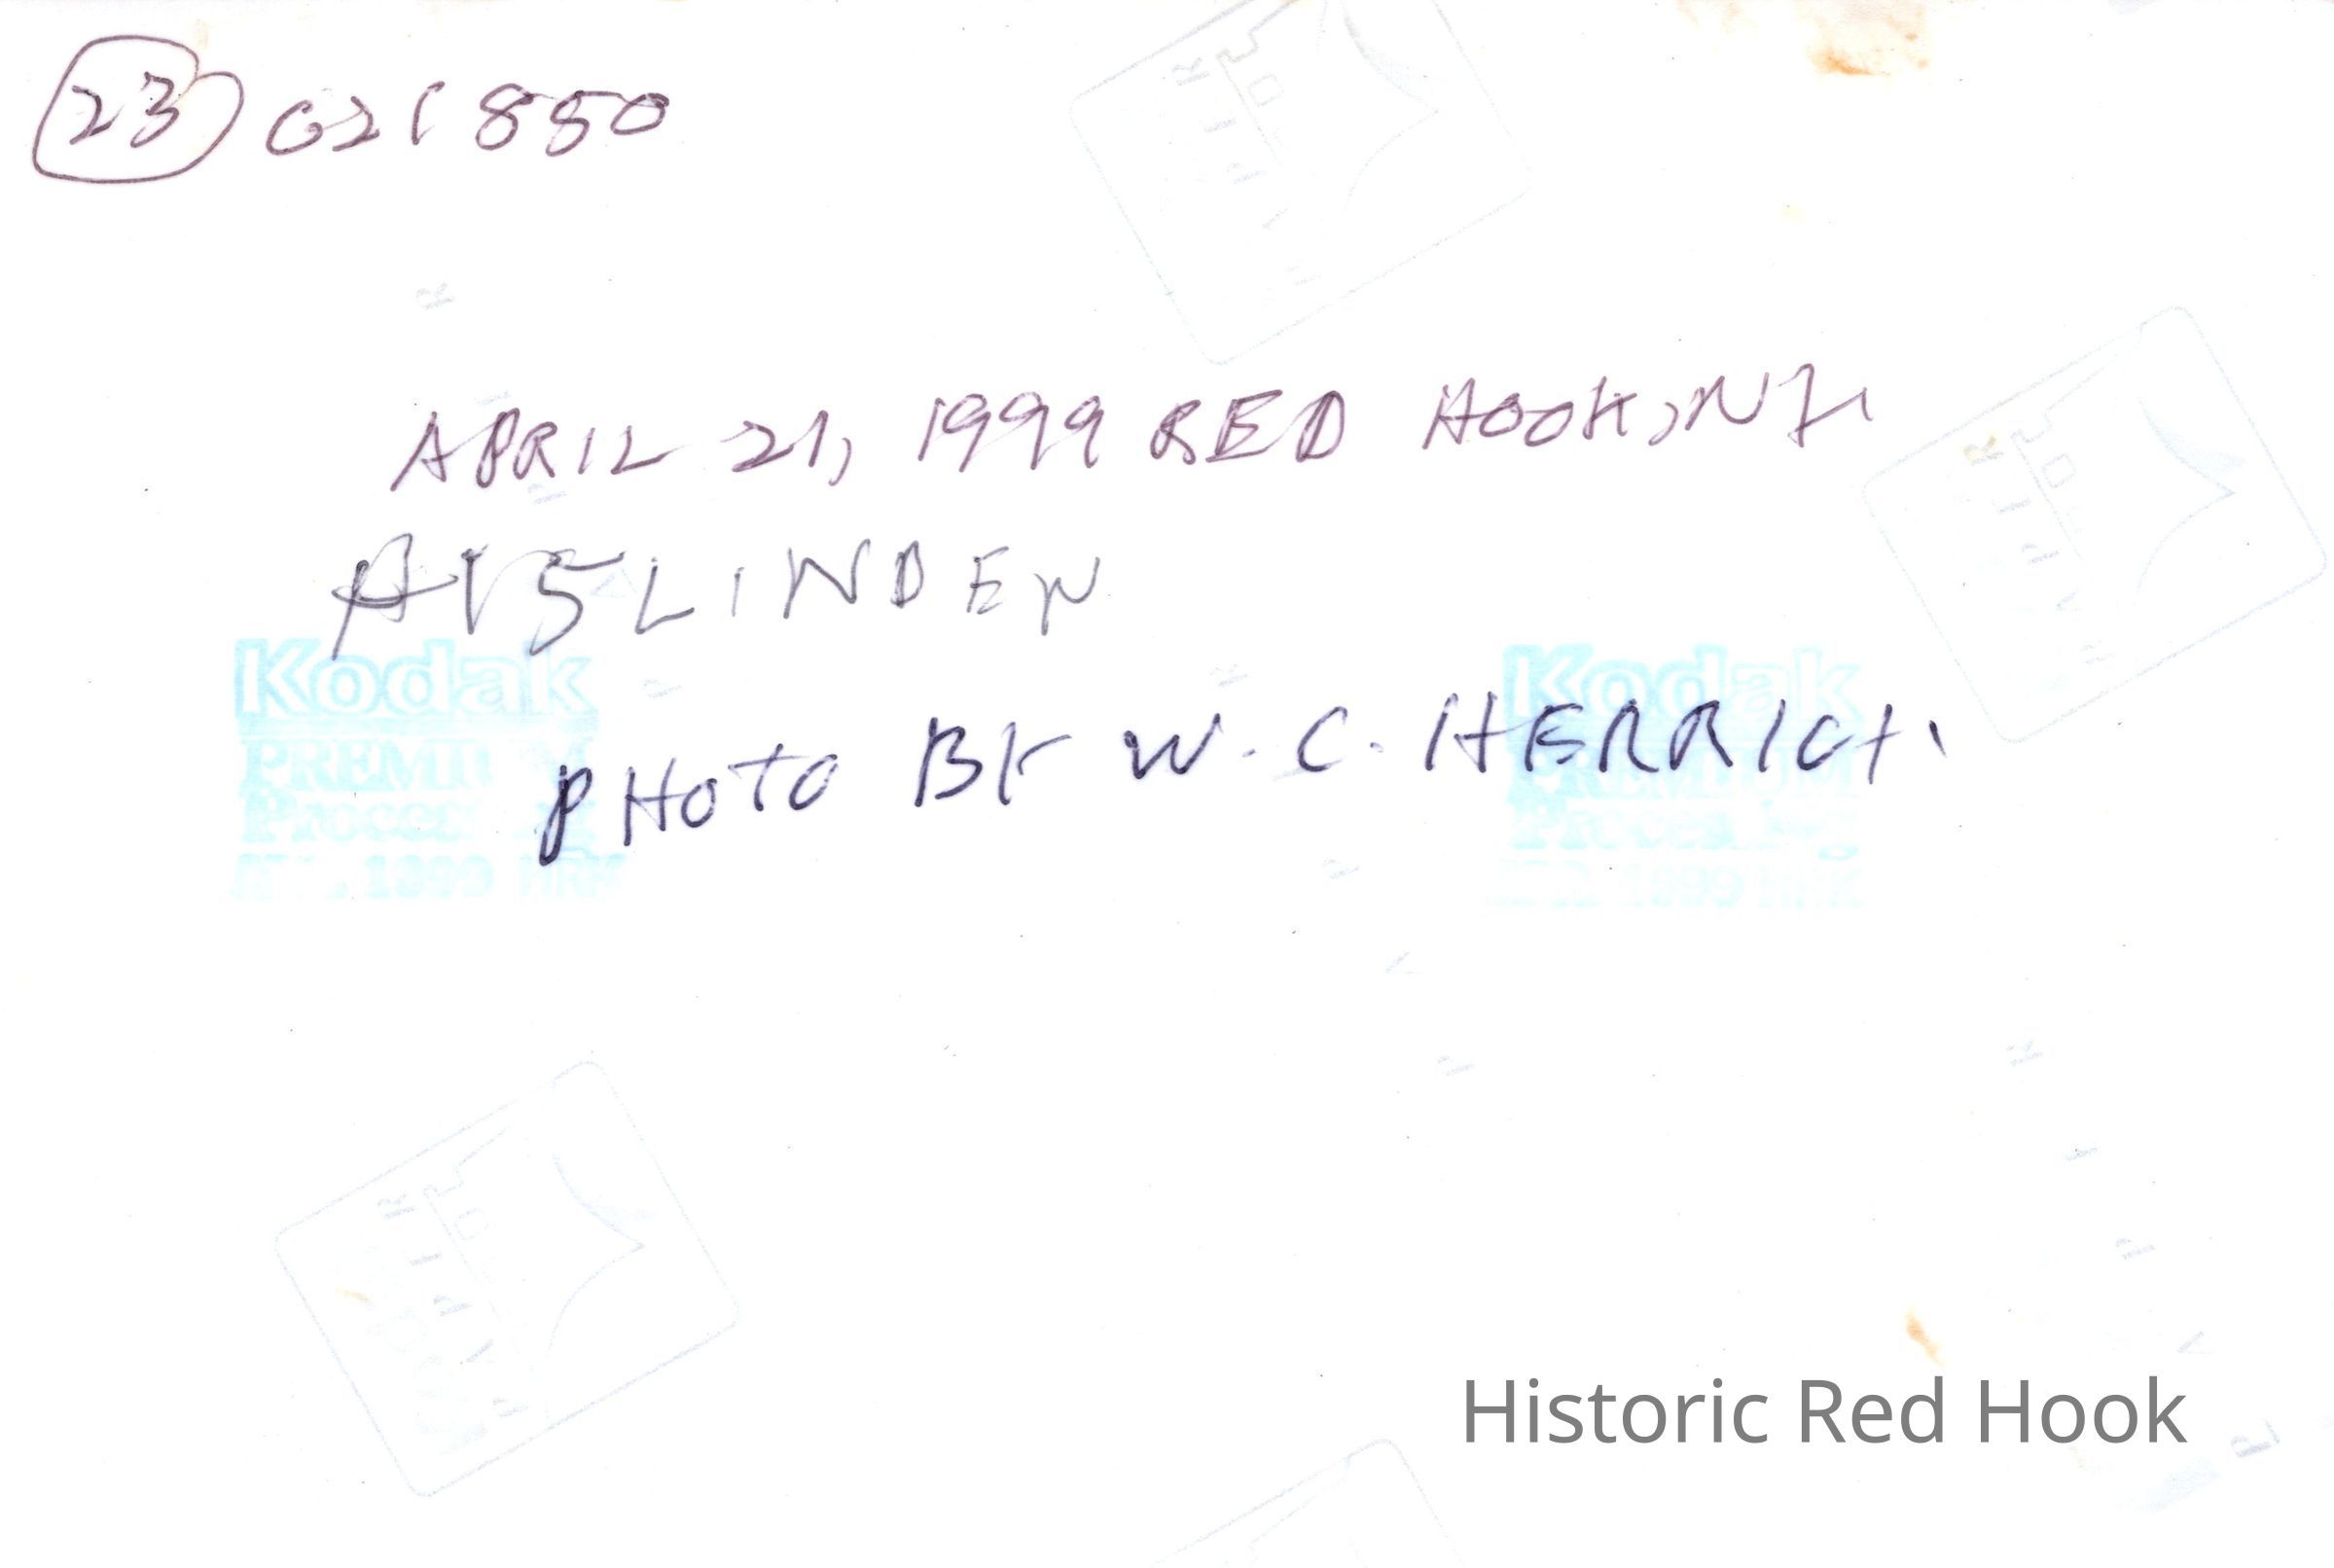 23 021850
APRIL 21, 1999 RED HOOK, NY
AT 5 LINDEN
Kodak Kodak
PHOTO BY W. C. HERRICK
PREMIUM PREMIUM
Processing Processing
1999 1999
Historic Red Hook